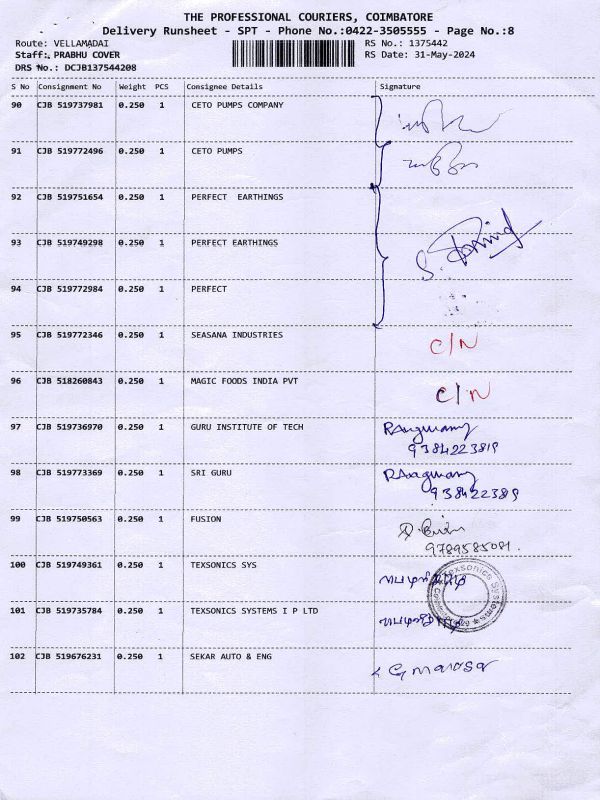 THE PROFESSIONAL COURIERS, COIMBATORE
Delivery Runsheet - SPT - Phone No.:0422-3505555 - Page No.:8
Route: VELLAMADAI RS No.: 1375442
Staff: PRABHU COVER RS Date: 31-May-2024
DRS No.: DCJB137544208
S No Consignment No Weight PCS Consignee Details Signature
90 CJB 519737981 0.250 1 CETO PUMPS COMPANY
91 CJB 519772496 0.250 1 CETO PUMPS
92 CJB 519751654 0.250 1 PERFECT EARTHINGS
93 CJB 519749298 0.250 1 PERFECT EARTHINGS
94 CJB 519772984 0.250 1 PERFECT
95 CJB 519772346 0.250 1 SEASANA INDUSTRIES C/N
96 CJB 518260843 0.250 1 MAGIC FOODS INDIA PVT C/N
97 CJB 519736970 0.250 1 GURU INSTITUTE OF TECH
9384223819
98 CJB 519773369 0.250 1 SRI GURU
938422389
99 CJB 519750563 0.250 1 FUSION
9789585081.
100 CJB 519749361 0.250 1 TEXSONICS SYS
Texsonics Systems
101 CJB 519735784 0.250 1 TEXSONICS SYSTEMS I P LTD
102 CJB 519676231 0.250 1 SEKAR AUTO & ENG